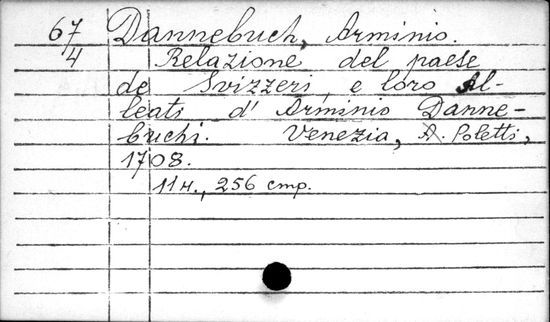 67 Dannebuch, Arminio.
4 Relazione del paese
de Svizzeri, e loro Al-
leats d' Arminio Danne-
buchi. Venezia, A. Poletti,
1708.
11 н., 256 стр.